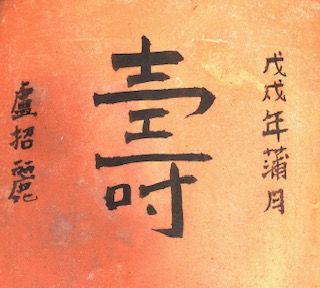 戊戌年蒲月
壽
盧招麗